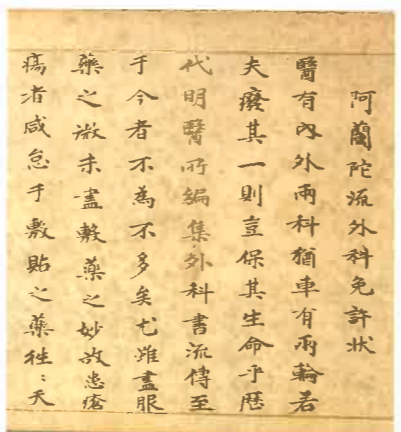 阿蘭陀流外科免許状
醫有內外兩科猶車有兩輪若
夫癈其一則豈保其生命乎歷
代明醫所編集外科書流傳至
于今者不為不多矣尤雖盡服
藥之微未盡敷藥之妙故患瘡
瘍者咸怠于敷貼之藥徃〻夭